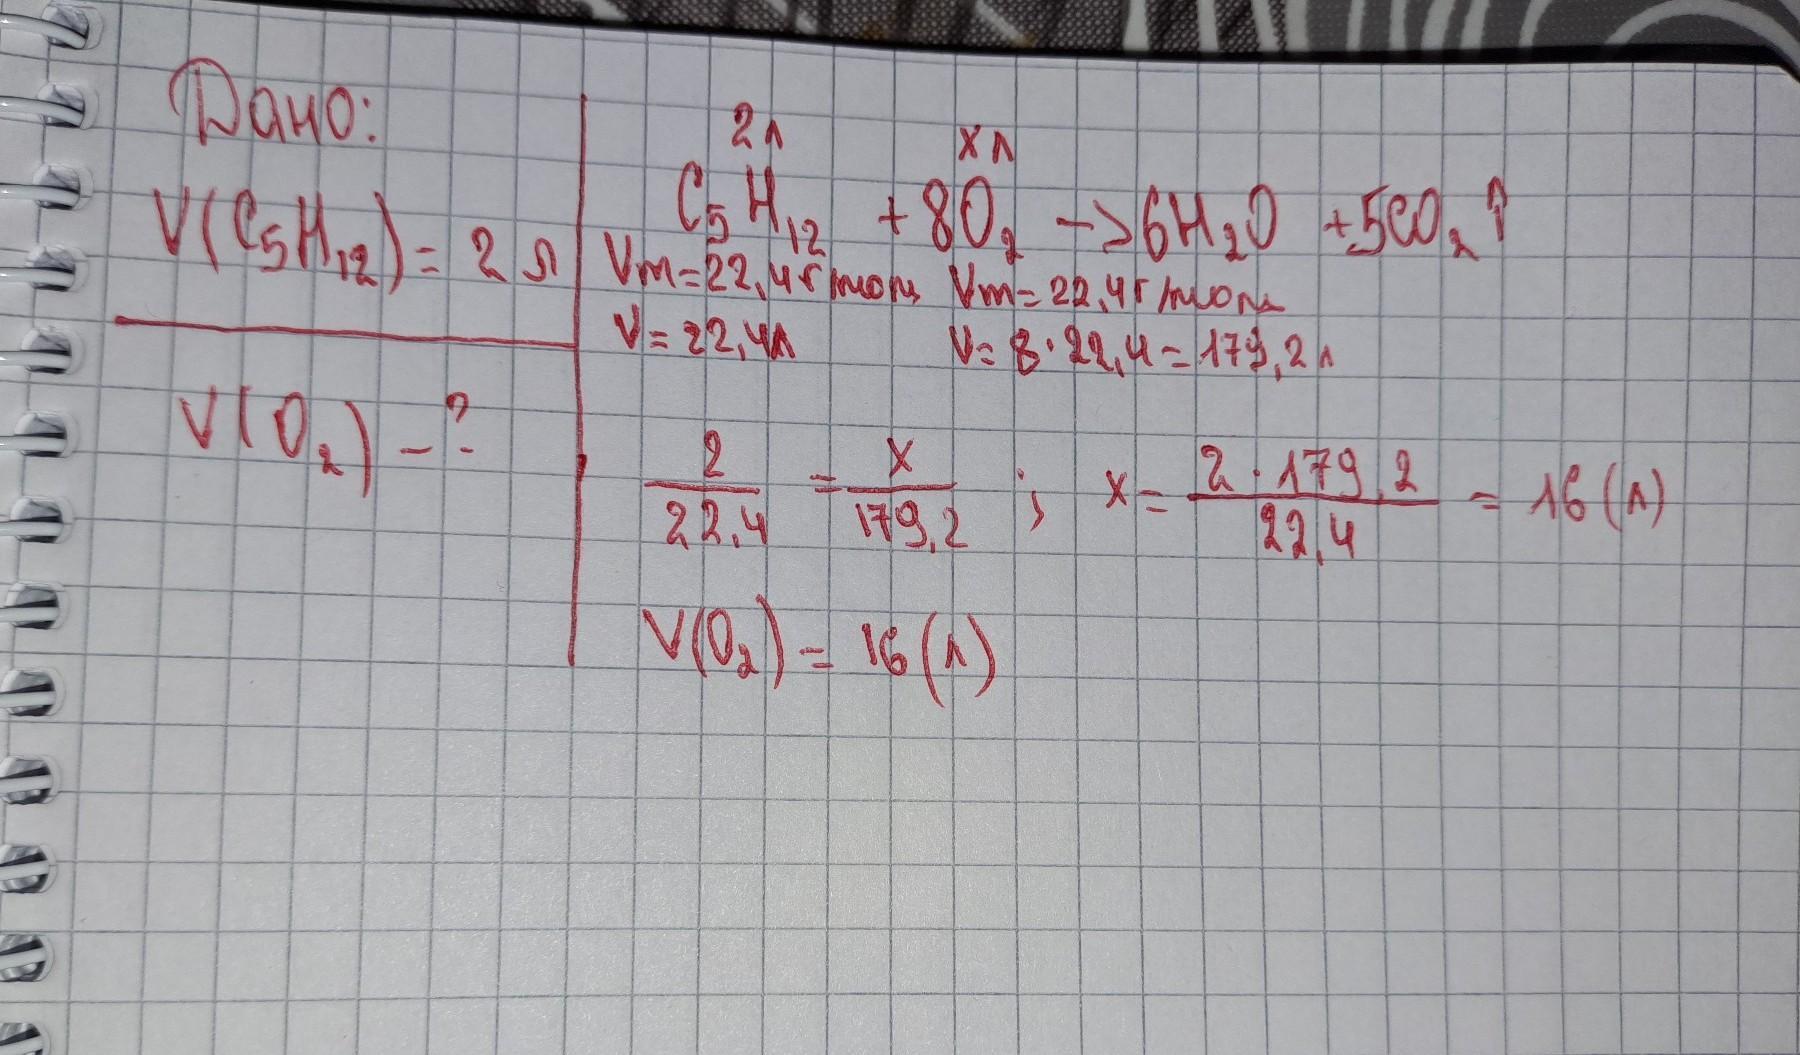 Дано:
V(C₅H₁₂) = 2 л
V(O₂) - ?
2л хл
C₅H₁₂ + 8O₂ -> 6H₂O + 5CO₂↑
Vm = 22,4 г/моль Vm = 22,4 г/моль
V = 22,4л V = 8 · 22,4 = 179,2 л
2/22,4 = x/179,2 ; x = 2 · 179,2/22,4 = 16 (л)
V(O₂) = 16 (л)